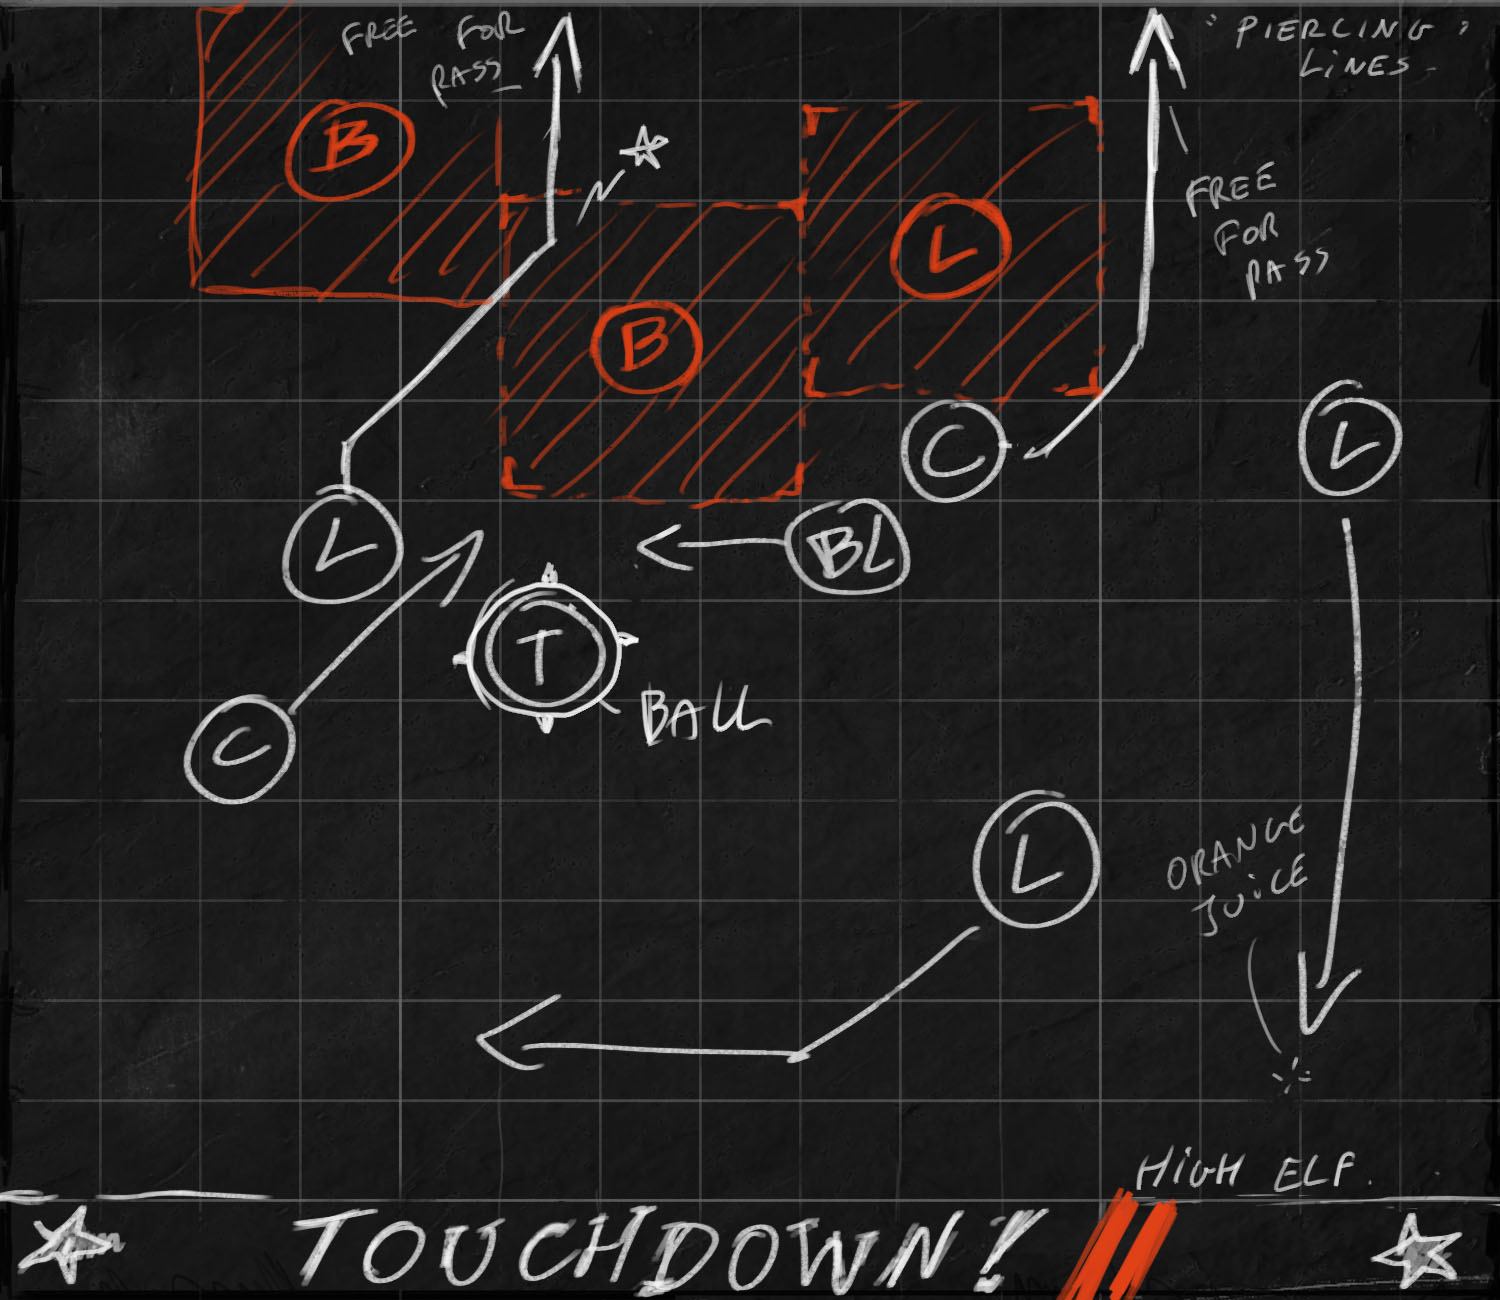 FREE FOR
PASS
" PIERCING "
LINES
B
L
FREE
FOR
PASS
B
C
L
L
BL
T
BALL
C
L
ORANGE
JUICE
HIGH ELF.
TOUCHDOWN!